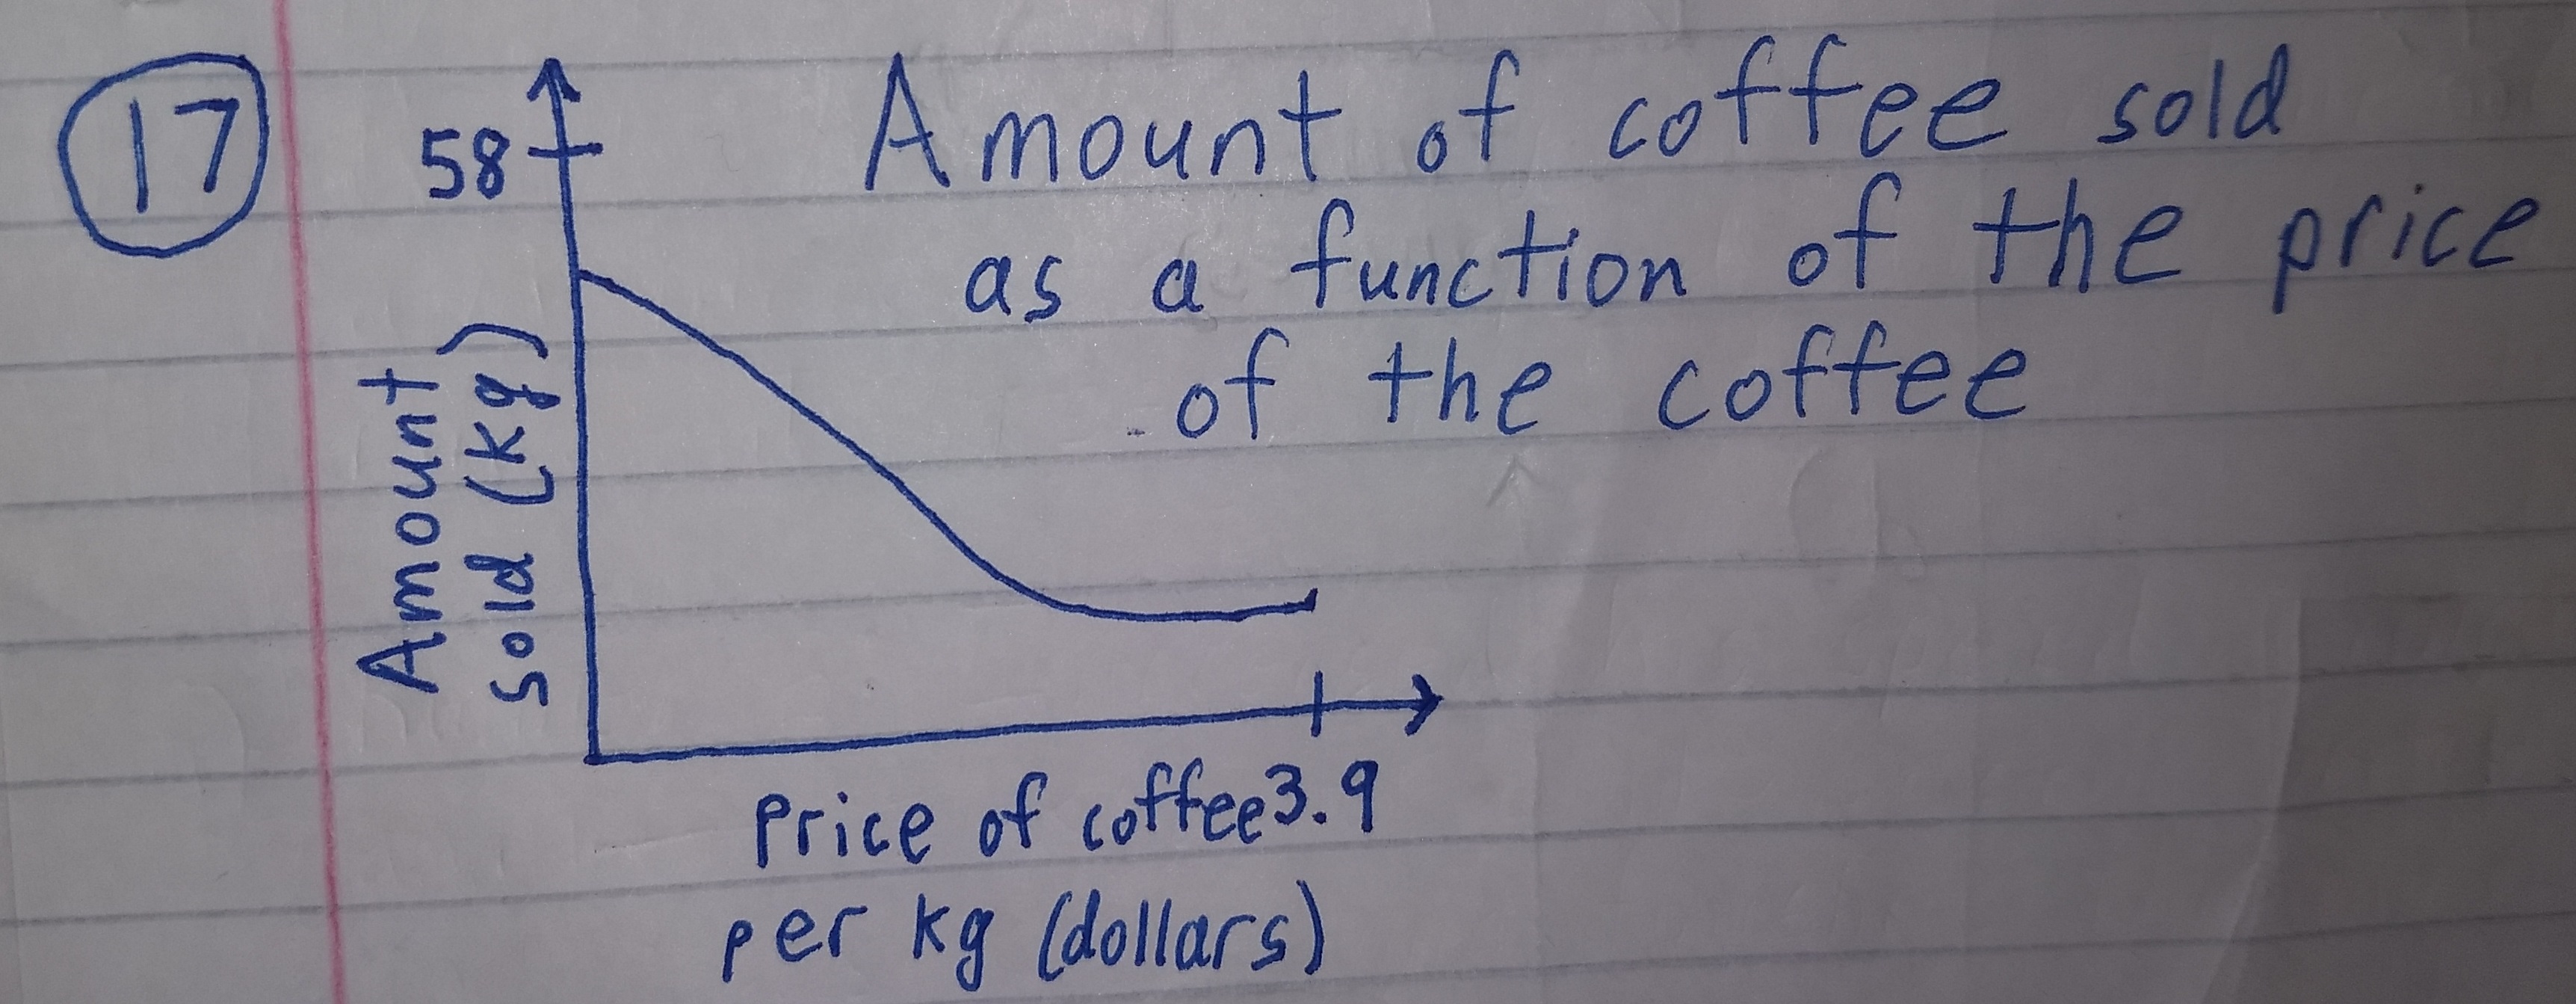 17
58
Amount of coffee sold
as a function of the price
of the coffee
Amount
sold (kg)
Price of coffee 3.9
per kg (dollars)